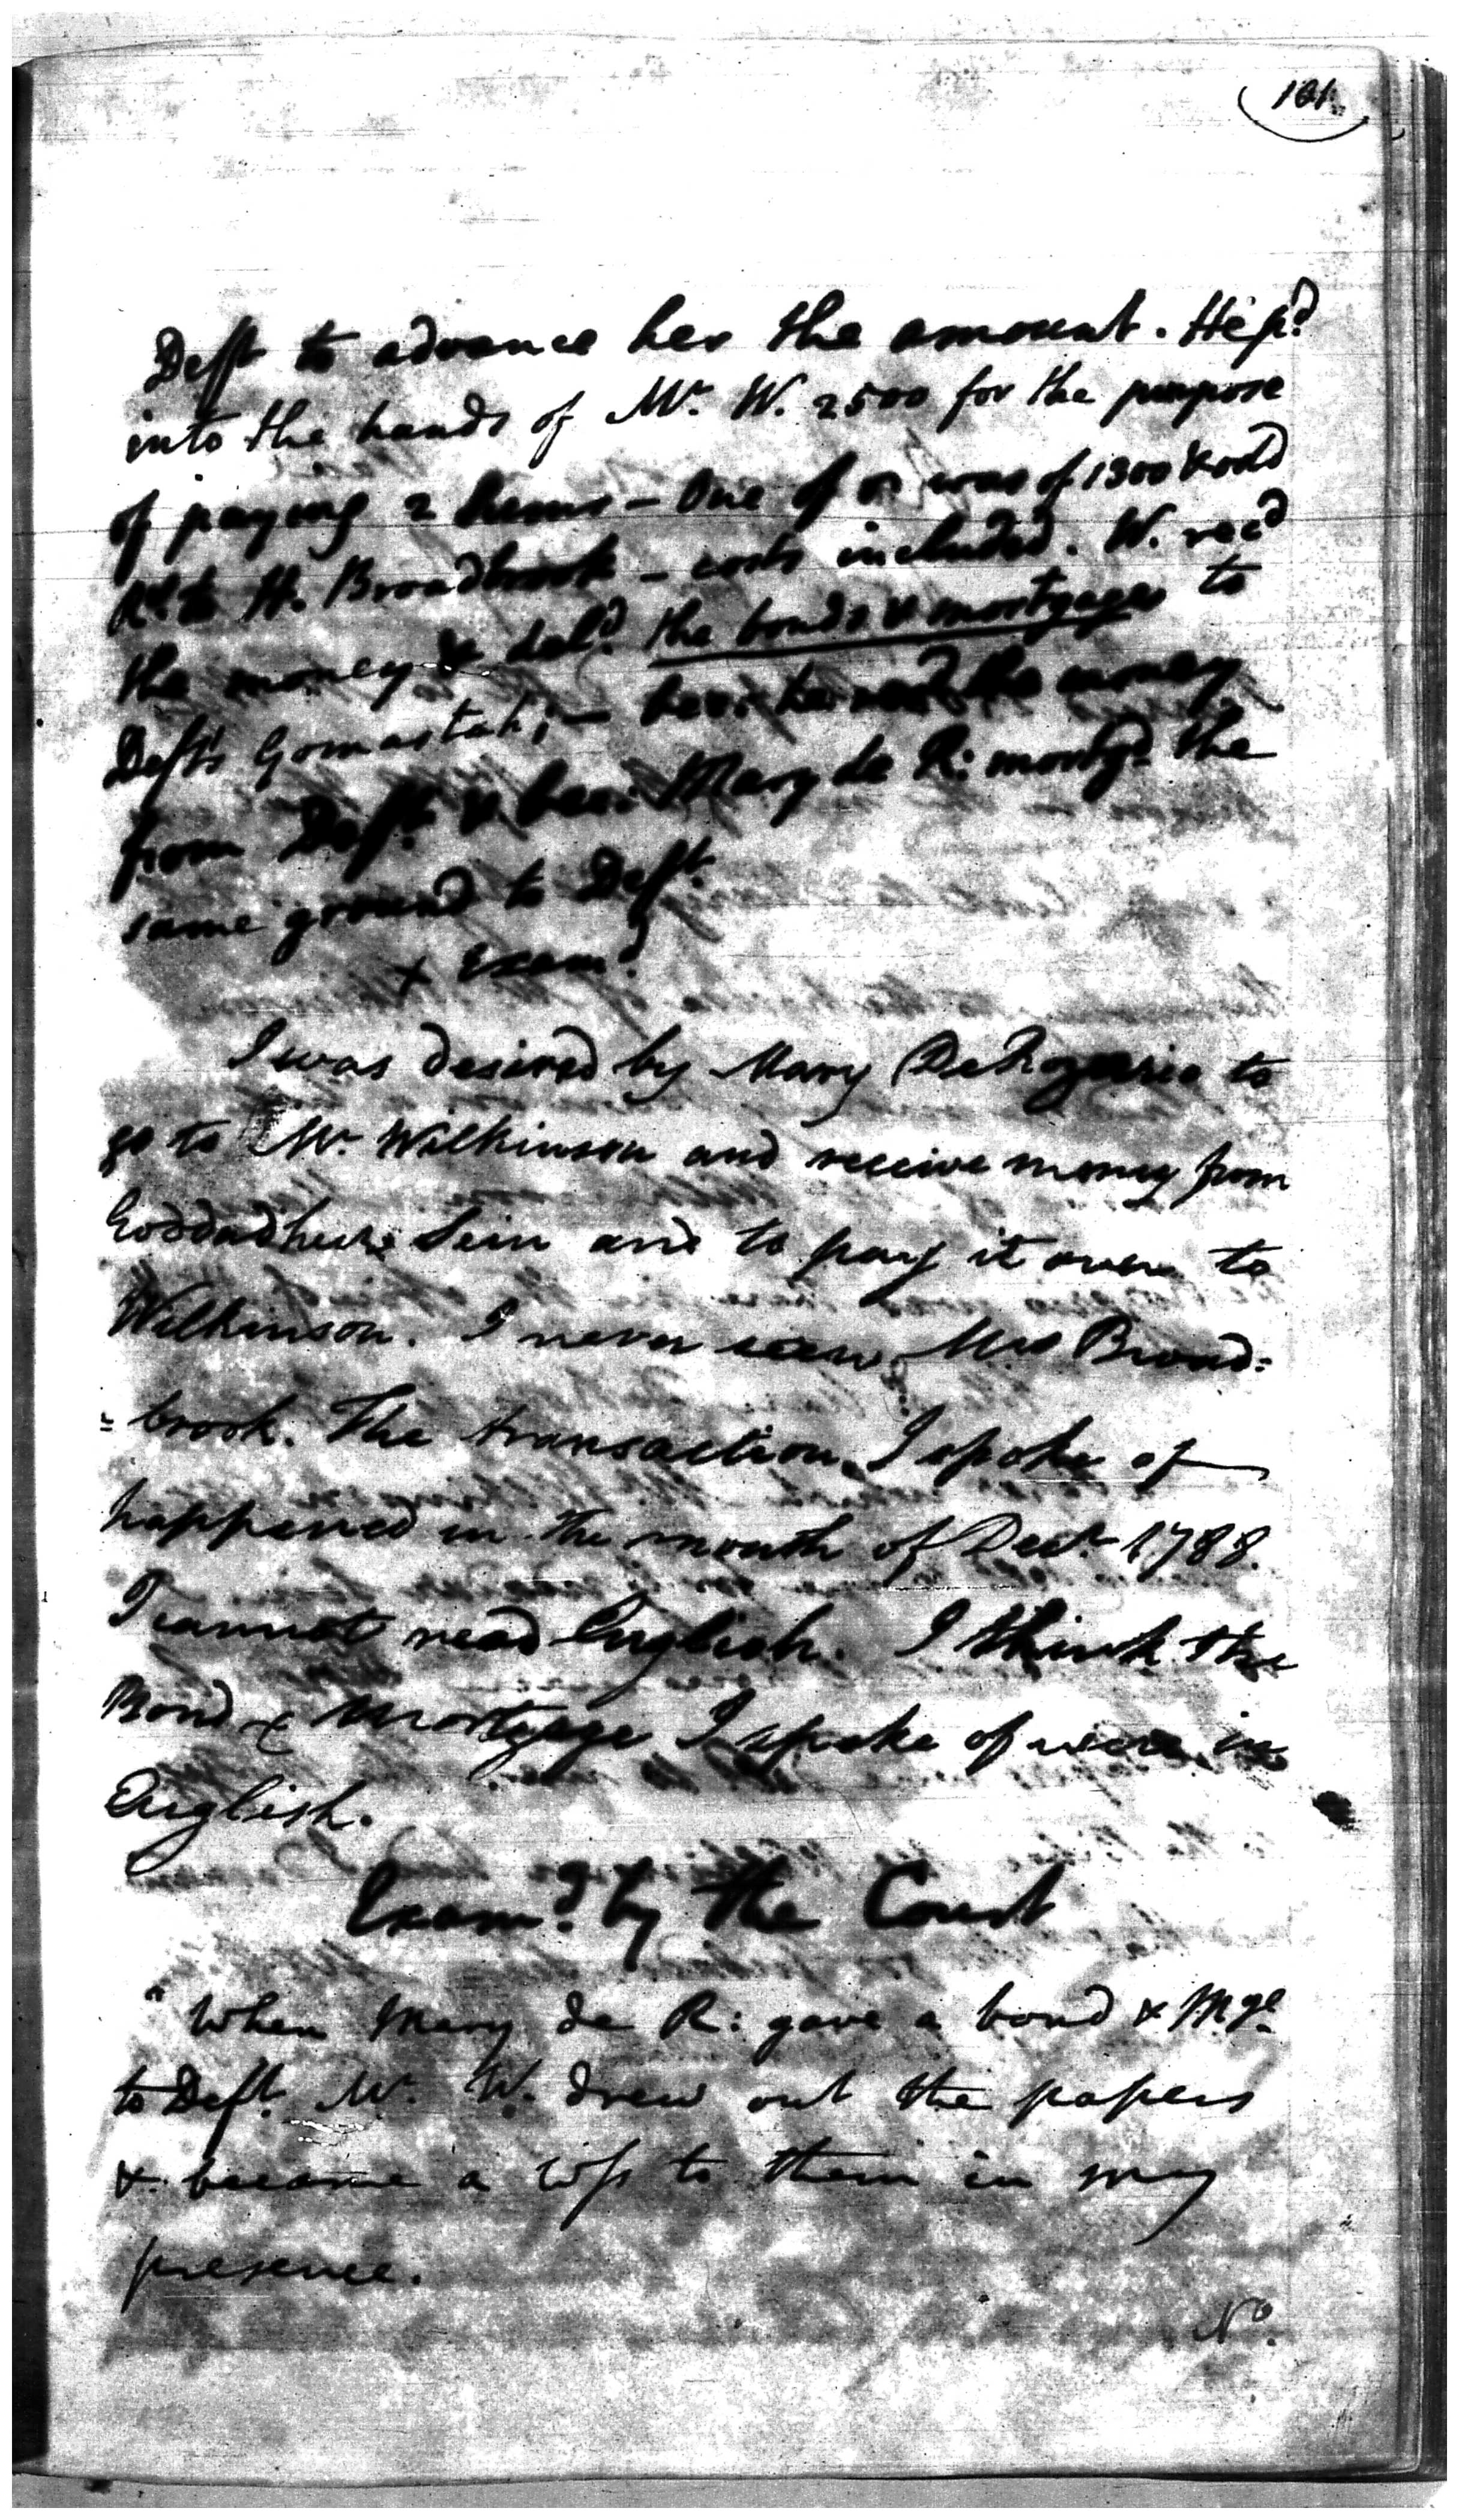 101.
Deft to advance her the amount. He p.d
into the hands of Mr. W. 2500 for the purpose
of paying 2 – One of was of 1300 & odd
to H. Broadbrook – costs included. W. rec.d
the money & del.d the bonds & mortgages to
Deft's Gomastah; – the money
from Deft. & Mary de R: mortg.d the
same ground to Deft.
x Exam.d
I was desired by Mary De to
go to Mr. Wilkinson and receive money from
Sein and to pay it over to
Wilkinson. I never seen Mrs Broad=
=brook. The transaction I spoke of
happened in the month of Decr. 1788.
I cannot read English. I think the
Bond & Mortgage I spoke of were in
English.
Exam.d by the Court
" When Mary de R: gave a bond & Mge.
to Deft. Mr. W. drew out the papers
& became a Wss to them in my
presence.
No.